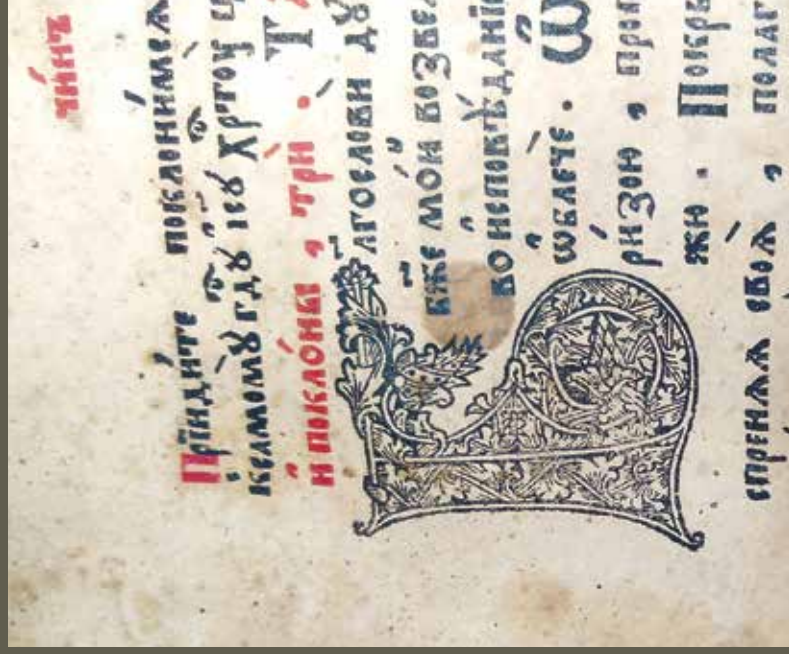 чи́нъ
Прїиди́те поклони́мсѧ
ксамомꙋ̀ гдⷭ҇ꙋ їс꙯ꙋ хрⷭ҇тоу ц
и҆ покло́ны , трѝ . Т
Блгослови дꙋ
бж҃е мо́и возвел
во и҆сповѣданї
ѡ҆блече . Ѡ
ри́зою , проп
жю . Покры
спренѧѧ своѧ̀ , полаг